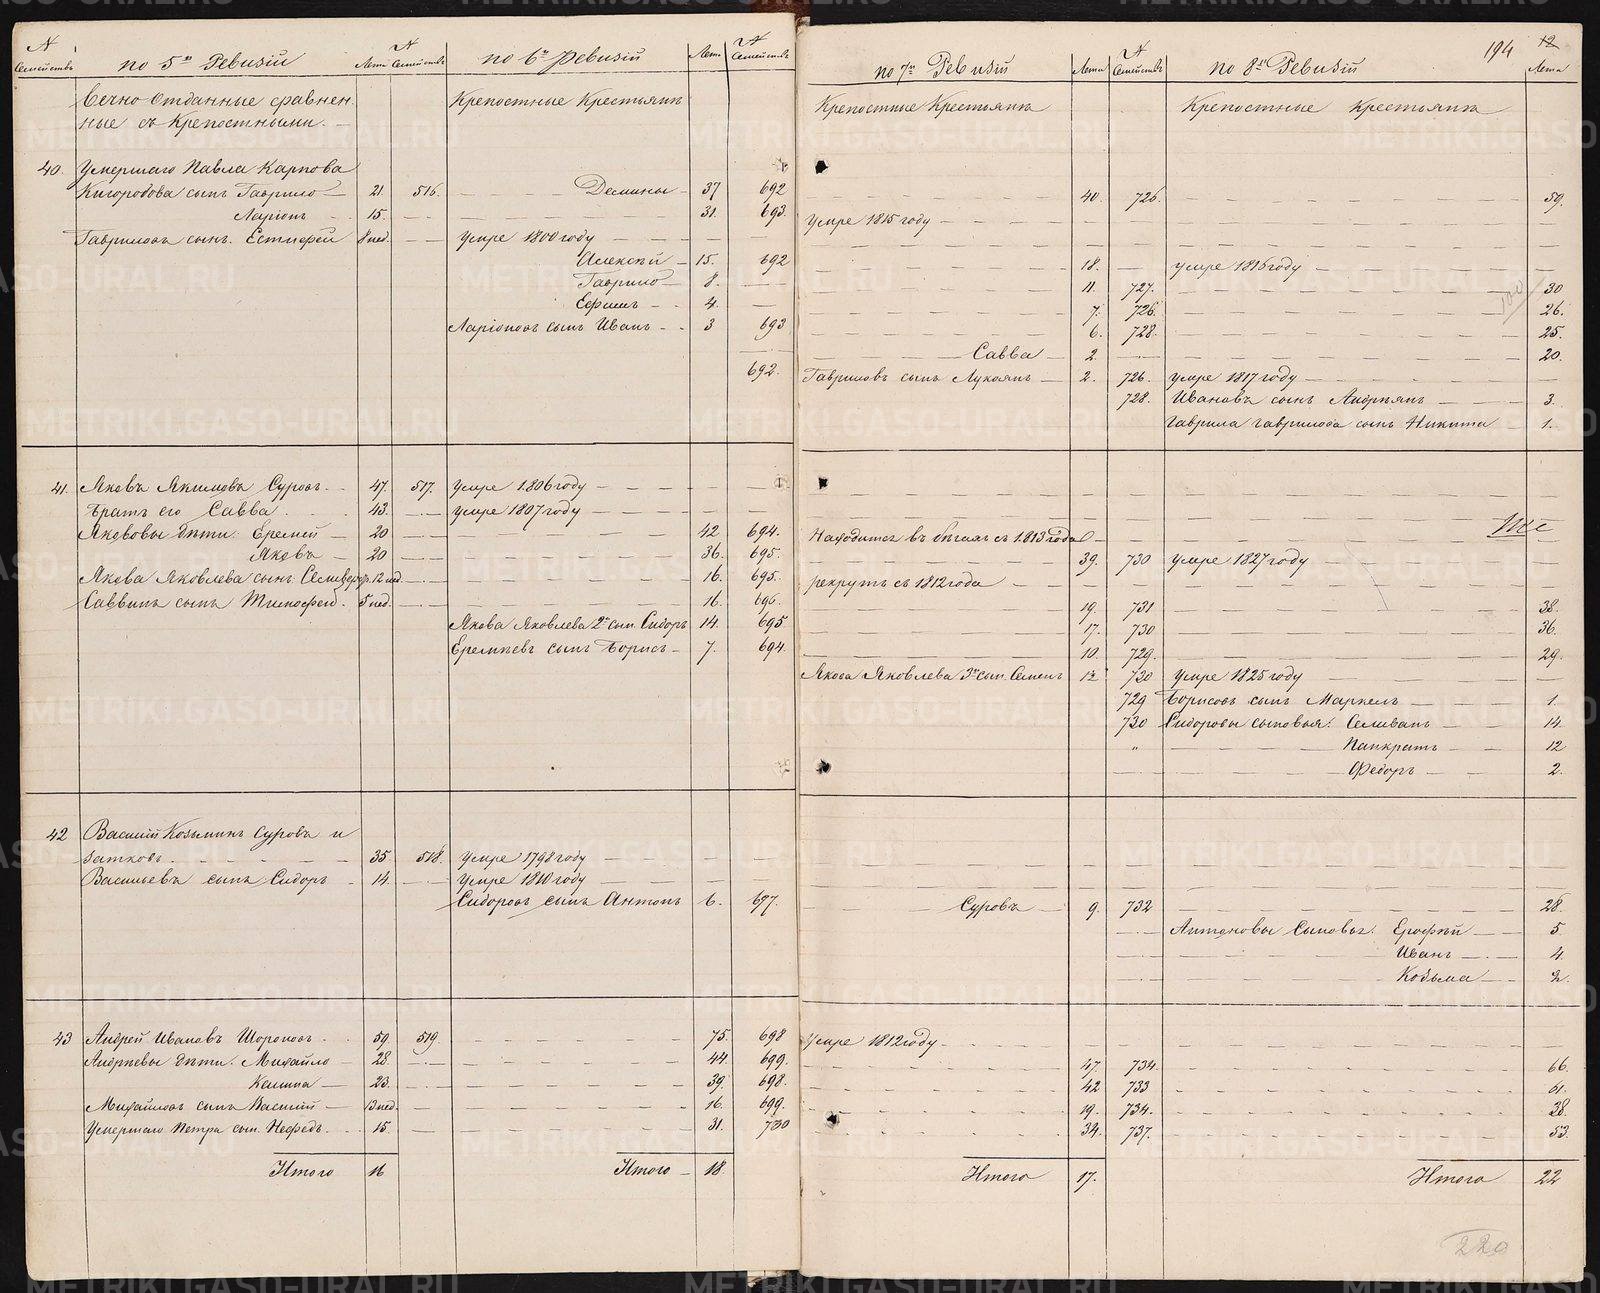 № Семействъ
по 5й Ревизiи
Лета
№ Семействъ
по 6й Ревизiи
Лета
№ Семействъ
Вечно отданные сравнен
ные съ Крепостными.
Крепостные Крестьяне
40. Умершаго Павла Карпова
сынъ Гаврило 21 516. Демины 37 692
Ларiонъ 15. 31. 693.
Гавриловъ сынъ. Естифей 8 нед. умре 1800 году
Алексей 15. 692
Гаврило 8.
Ефимъ 4.
Ларiоновъ сынъ Иванъ 3 693
692.
41. Яковъ Якимовъ Суровъ. 47. 517. умре 1806 году
Братъ его Савва 43. умре 1807 году
Яковлевы дети: Еремей 20 42 694.
Яковъ 20 36. 695.
Якова Яковлева сынъ Селиверстъ 12 нед. 16. 695.
Саввинъ сынъ Тимофей. 5 нед. 16. 696.
Якова Яковлева 2й сын. Сидоръ 14. 695
Еремеевъ сынъ Борисъ 7. 694.
42 Василiй Козьминъ Суровъ и
Зятковъ 35. 518. Умре 1798 году
Васильевъ сынъ Сидоръ 14. Умре 1810 году
Сидоровъ сынъ Антонъ 6. 697.
43 Андрей Ивановъ Шороновъ. 59. 519. 75. 698
Андреевы дети. Михайло 28. 44. 699.
23. 39. 698.
Михайловъ сынъ Василiй 13 нед. 16. 699.
Умершаго Петра сын. Нефедъ. 15. 31. 700
Итого 16 Итого 18.
194 12
по 7й Ревизiи
Лета
№ Семействъ
по 8й Ревизiи
Лета
Крепостные Крестьяне
Крепостные Крестьяне
40. 726. 59.
Умре 1815 году
18. умре 1816 году
11. 727. 30
7. 726. 26.
6. 728. 25.
Савва 2. 20.
Гавриловъ сынъ Лукоянъ 2. 726. умре 1817 году
728. Ивановъ сынъ Андреянъ 3.
Гаврила Гаврилова сынъ Никита 1.
Находится въ бегахъ съ 1813 года
39. 730 умре 1827 году
рекрутъ съ 1812 года
19. 731 38.
17. 730 36.
10. 729. 29.
Якова Яковлева 3й сын. Семенъ 730 Умре 1825 году
729 Борисовъ сынъ Маркелъ 1.
730 Сидоровы сыновья: Селиванъ 14.
" Панкратъ 12
Федоръ 2.
Суровъ 9. 732 28.
Антоновы Сыновья: Ерофей 5.
Иванъ 4.
Козьма 2.
Умре 1812 году
47. 734. 66.
42 733 61.
19. 734. 38.
34. 737. 53.
Итого 17. Итого 22
220
METRIKI.GASO-URAL.RU